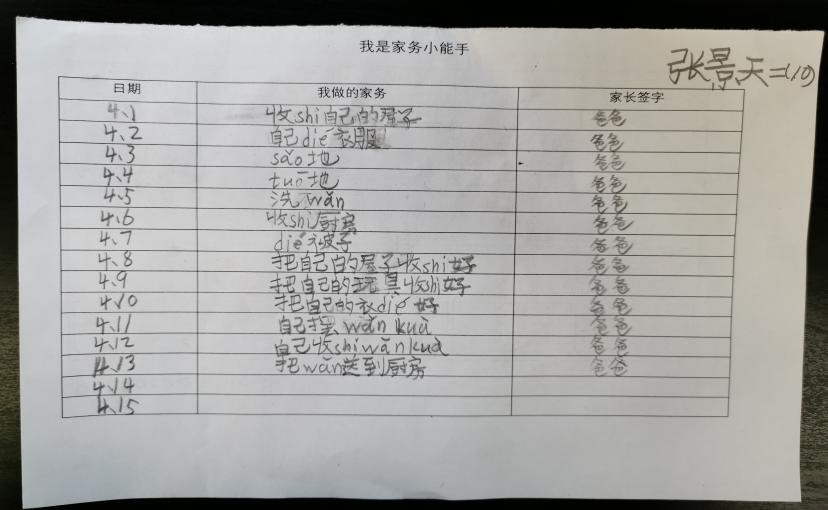 我是家务小能手
张景天二(10)
日期 我做的家务 家长签字
4、1 收shi自己的屋子 爸爸
4、2 自己dié衣服 爸爸
4、3 sǎo地 爸爸
4、4 tuō地 爸爸
4、5 洗wǎn 爸爸
4、6 收shi厨房 爸爸
4、7 dié被子 爸爸
4、8 把自己的屋子收shi好 爸爸
4、9 把自己的玩具收shi好 爸爸
4、10 把自己的衣dié好 爸爸
4、11 自己摆wǎn kuà 爸爸
4、12 自己收shiwǎnkuà 爸爸
4、13 把wǎn送到厨房 爸爸
4、14
4、15